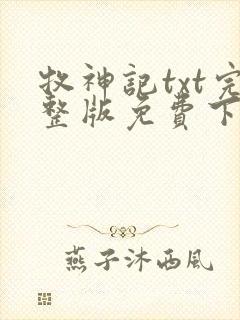 牧神記txt完
整版免費下
燕子沐西風